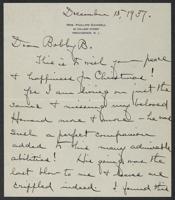 December 15, 1937.
MRS. PHILLIPS GAMWELL
Dear Bobby B.
This is to wish you peace
& happiness for Christmas!
Yes I am living on just the
same & missing my beloved
Howard more & more — he was
such a perfect companion
added to his many admirable
abilities! His going was the
last blow to me & leaves me
crippled indeed. I found this